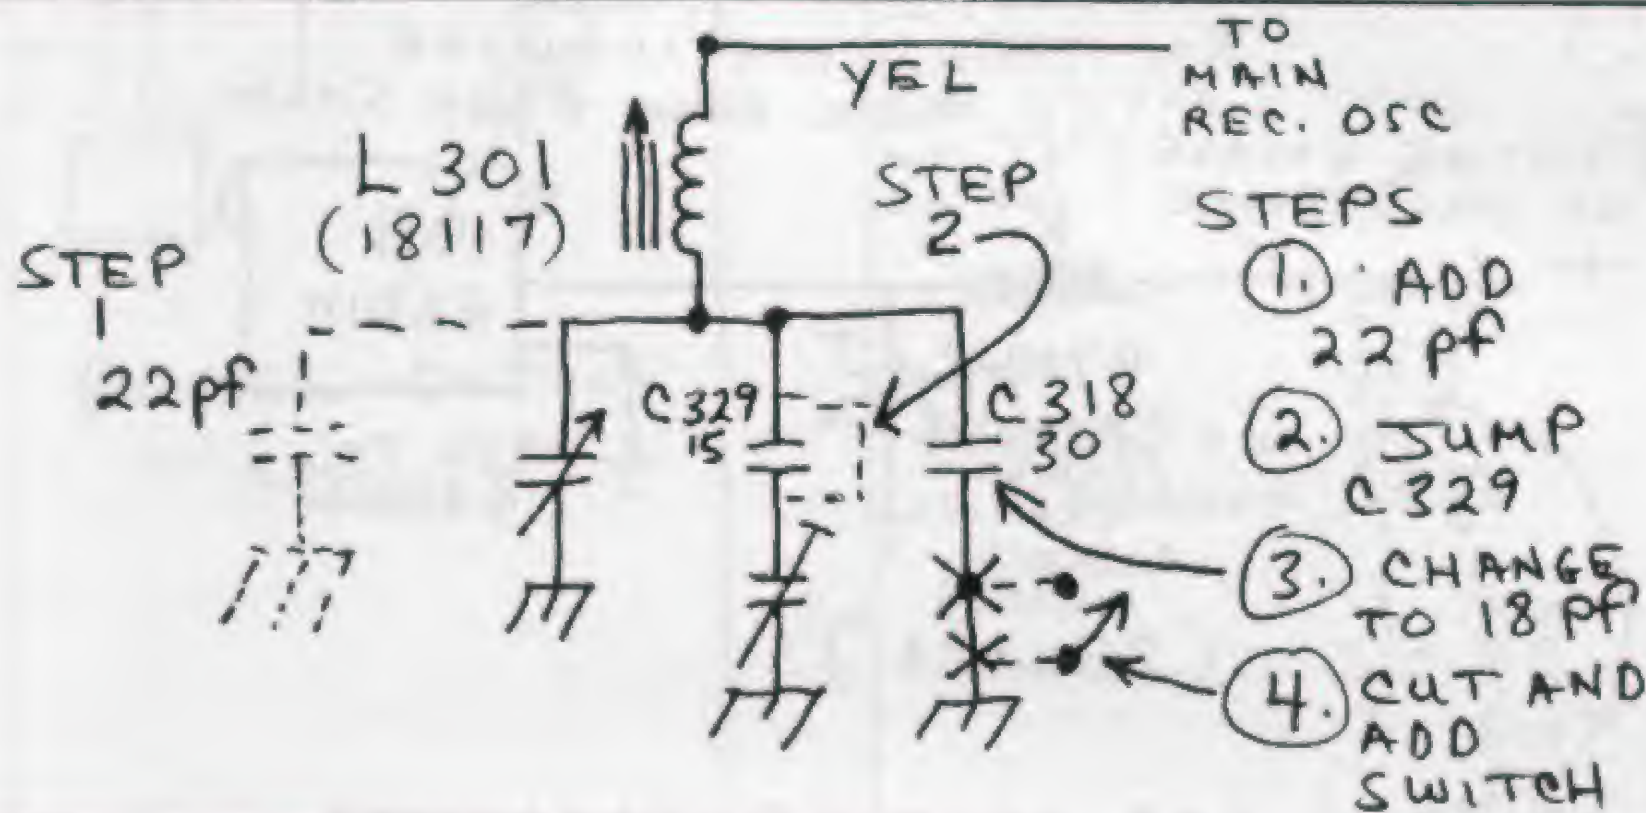 TO
MAIN
REC. OSC
YEL
L 301
(18117)
STEP
2
STEP
1
22pf
C 329
15
C 318
30
STEPS
1. ADD
22 pf
2. JUMP
C 329
3. CHANGE
TO 18 pf
4. CUT AND
ADD
SWITCH